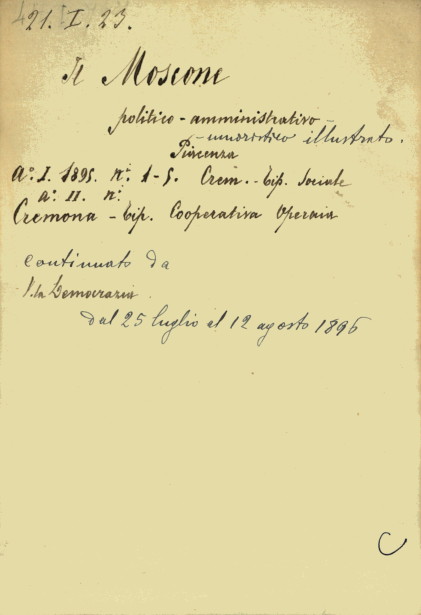 21. I. 23.
Il Moscone
politico - amministrativo -
- umoristico illustrato.
Piacenza
a.º I. 1895. nⁱ. 1-5. Crem. - Tip. Sociale
a.º II. nⁱ
Cremona - Tip. Cooperativa Operaia
continuato da
V. la Democrazia
dal 25 luglio al 12 agosto 1896
C